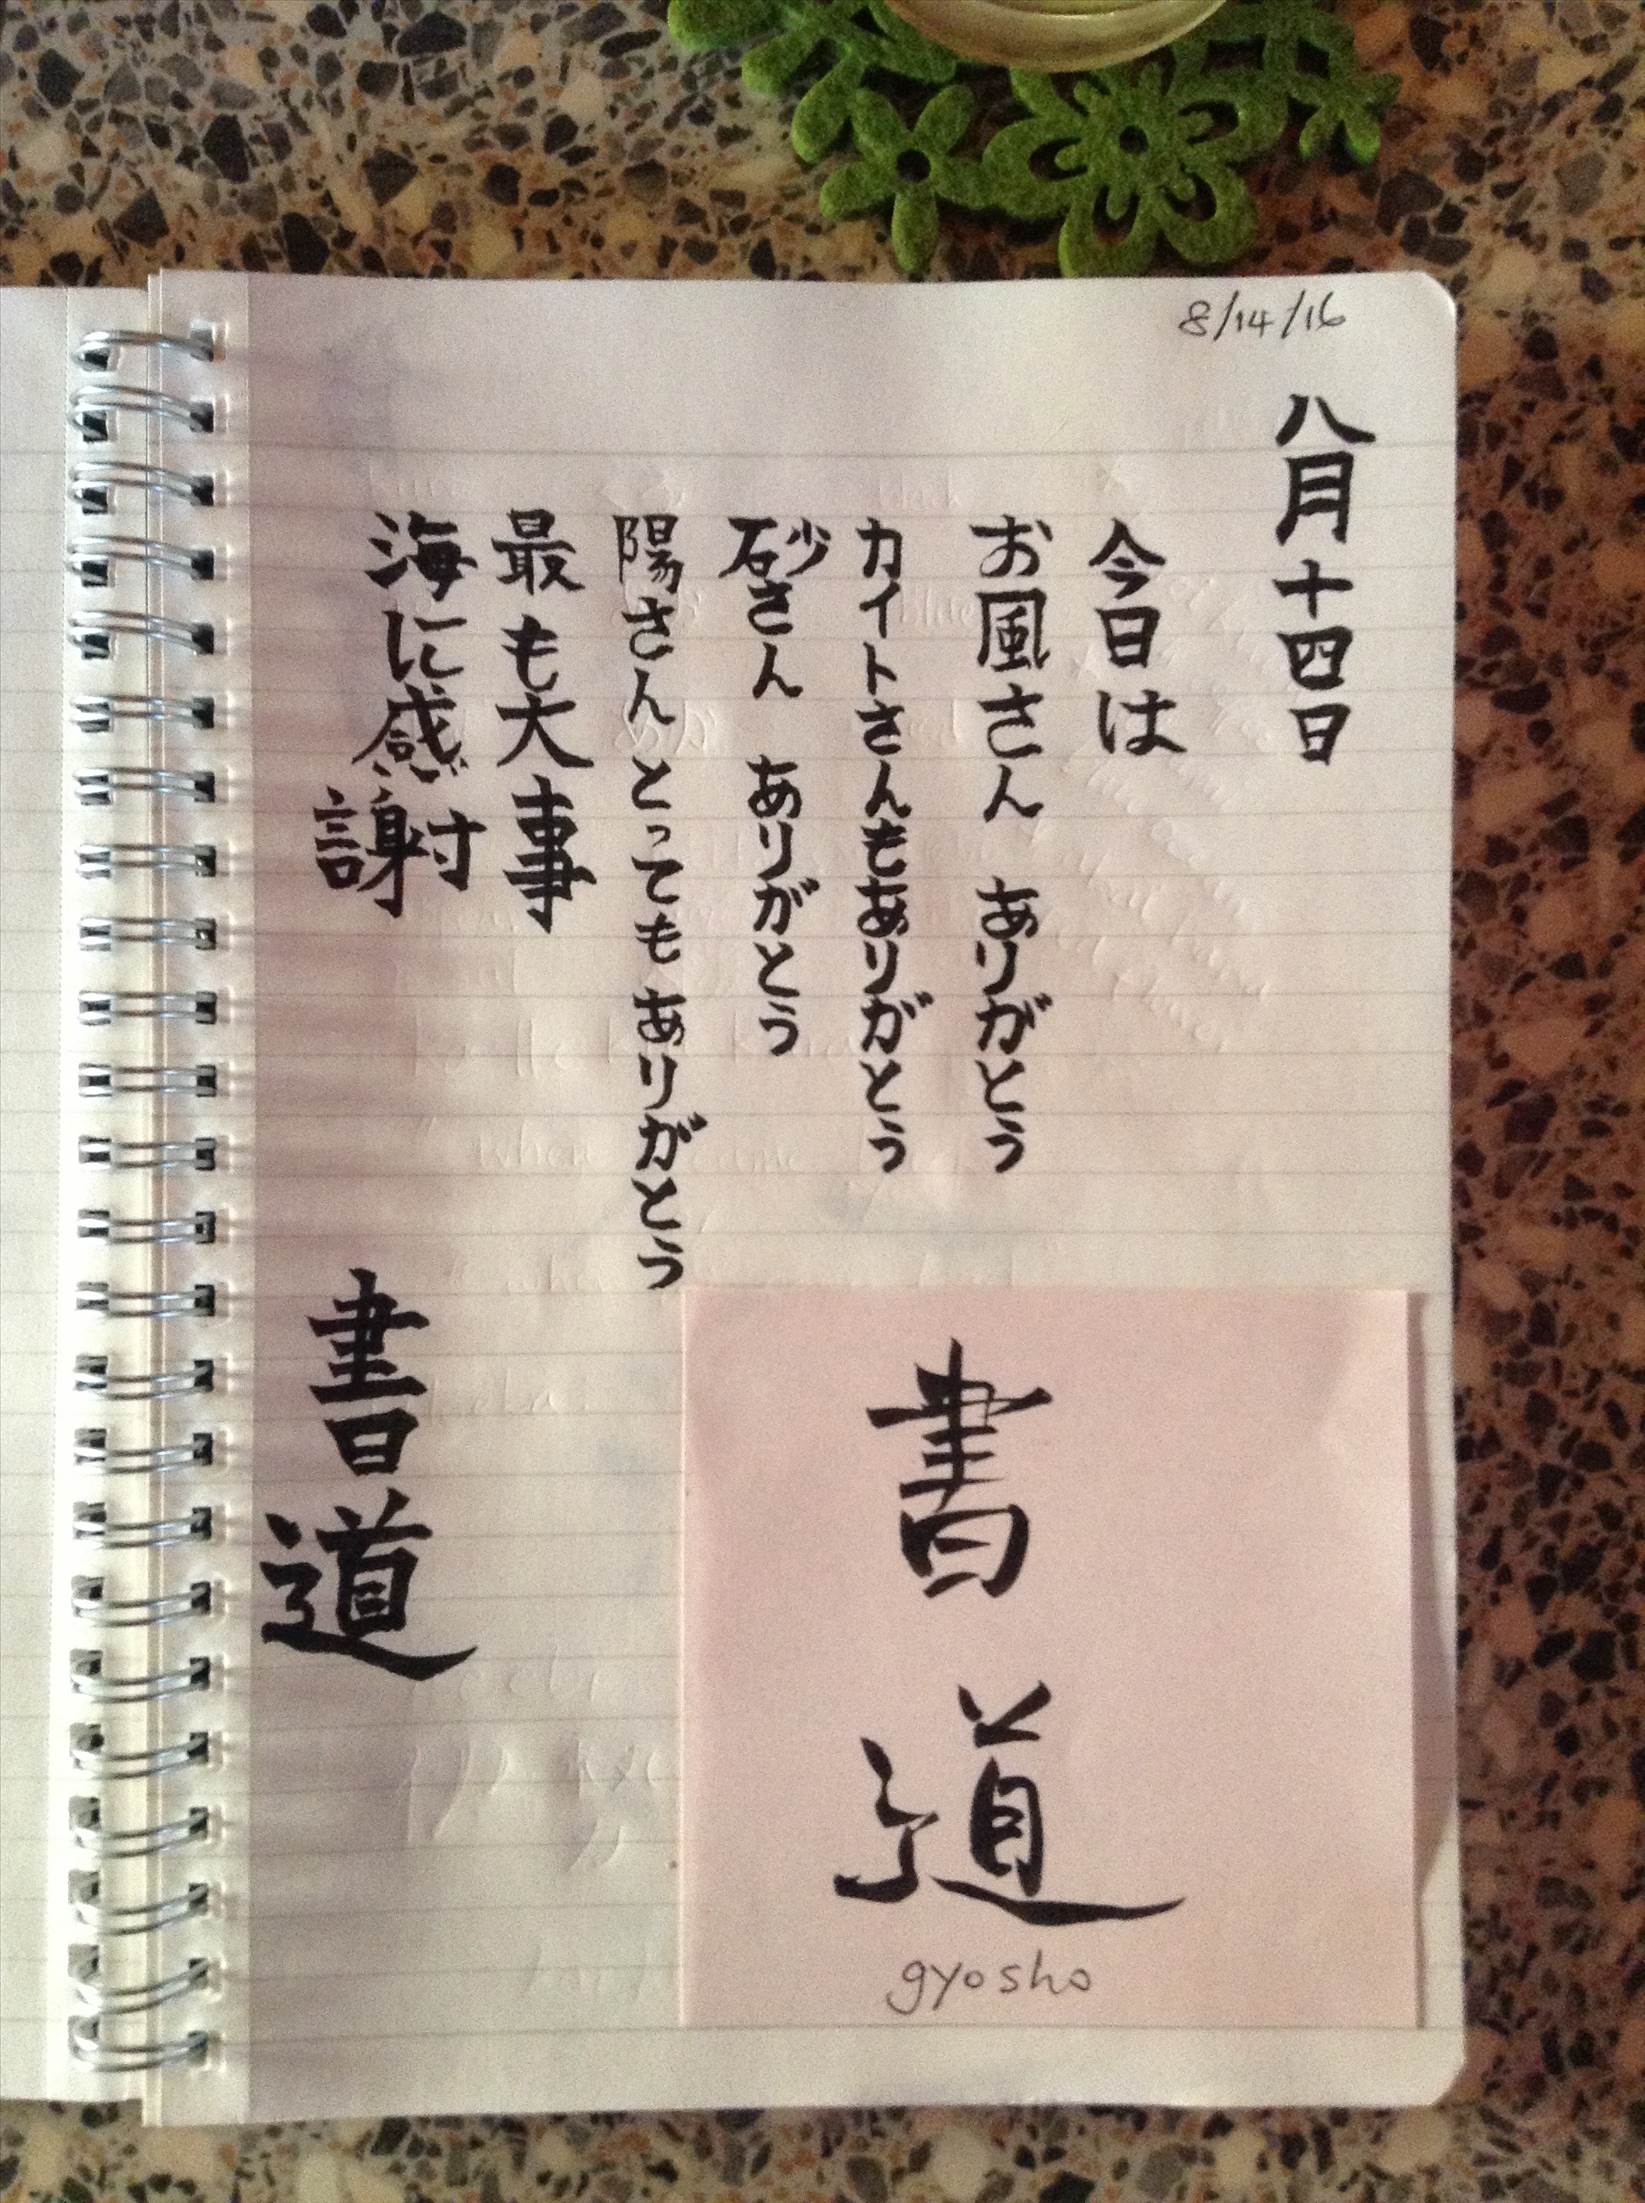 8/14/16
八月十四日
今日は
お風さん ありがとう
カイトさんもありがとう
砂さん ありがとう
陽さんとってもありがとう
最も大事
海に感謝
書道
書道
gyosho